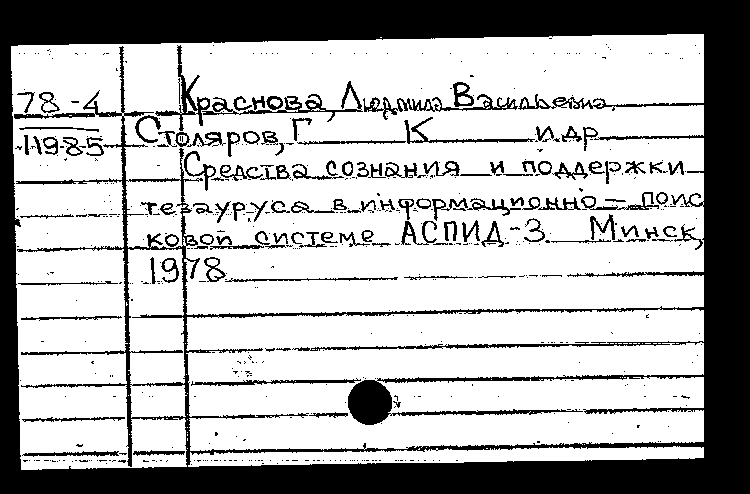 78-4 Краснова, Людмила Васильевна
11985 Столяров, Г К и др
Средства сознания и поддержки
тезауруса в информационно-поис
ковой системе АСПИД-3. Минск,
1978